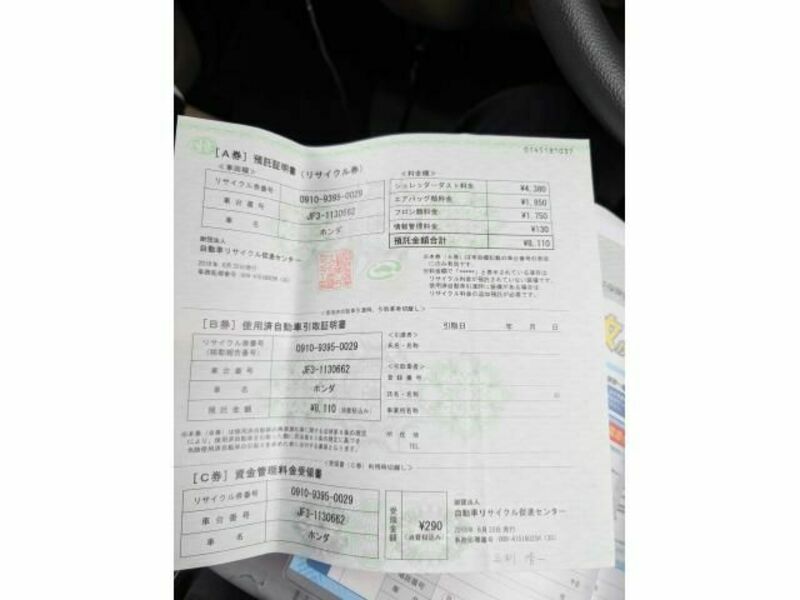 0145181037
[A券] 預託証明書 (リサイクル券)
<車両欄>
リサイクル券番号 0910-9395-0029
車台番号 JF3-1130662
車名 ホンダ
財団法人
自動車リサイクル促進センター
<料金欄>
シュレッダーダスト料金 ¥4,380
エアバッグ類料金 ¥1,950
フロン類料金 ¥1,750
情報管理料金 ¥130
預託金額合計 ¥8,110
リサイクル料金が預託されていない装備です。
リサイクル料金の追加預託が必要です。
[B券] 使用済自動車引取証明書
リサイクル券番号
(移動報告番号) 0910-9395-0029
車台番号 JF3-1130662
車名 ホンダ
預託金額 ¥8,110 (消費税込み)
引取日 年 月 日
<引渡者>
氏名・名称
<引取業者>
登録番号
氏名・名称
事業所名称
所在地
TEL
[C券] 資金管理料金受領書
リサイクル券番号 0910-9395-0029
車台番号 JF3-1130662
車名 ホンダ
受領金額 ¥290 (消費税込み)
財団法人
自動車リサイクル促進センター